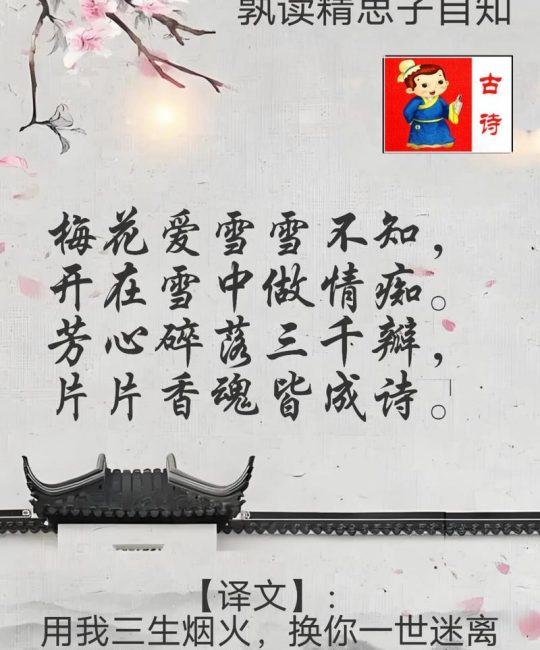 孰读精思子自知
古诗
梅花爱雪雪不知，
开在雪中做情痴。
芳心碎落三千瓣，
片片香魂皆成诗。
【译文】：
用我三生烟火，换你一世迷离